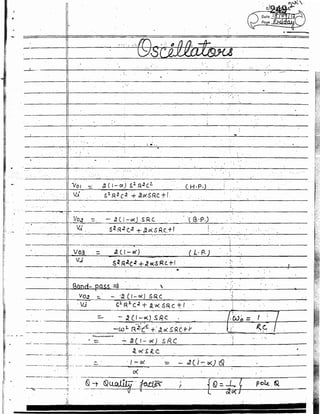 249
Date
Page
Oscillators
Vo1/Vi = 2(1-α) S²R²C² / S²R²C² + 2αSRC+1 (H.P.)
Vo2/Vi = - 2(1-α) SRC / S²R²C² + 2αSRC+1 (B.P.)
Vo3/Vi = 2(1-α) / S²R²C² + 2αSRC+1 (L.P.)
Band-pass ⇒
Vo2/Vi = - 2(1-α) SRC / S²R²C² + 2αSRC+1
= - 2(1-α) SRC / -ω²R²C² + 2αSRC+1 ω₀ = 1/RC
= - 2(1-α) SRC / 2αSRC
= 1-α / α = - 2(1-α) Q
Q → Quality factor ; Q = 1/2α Pole Q